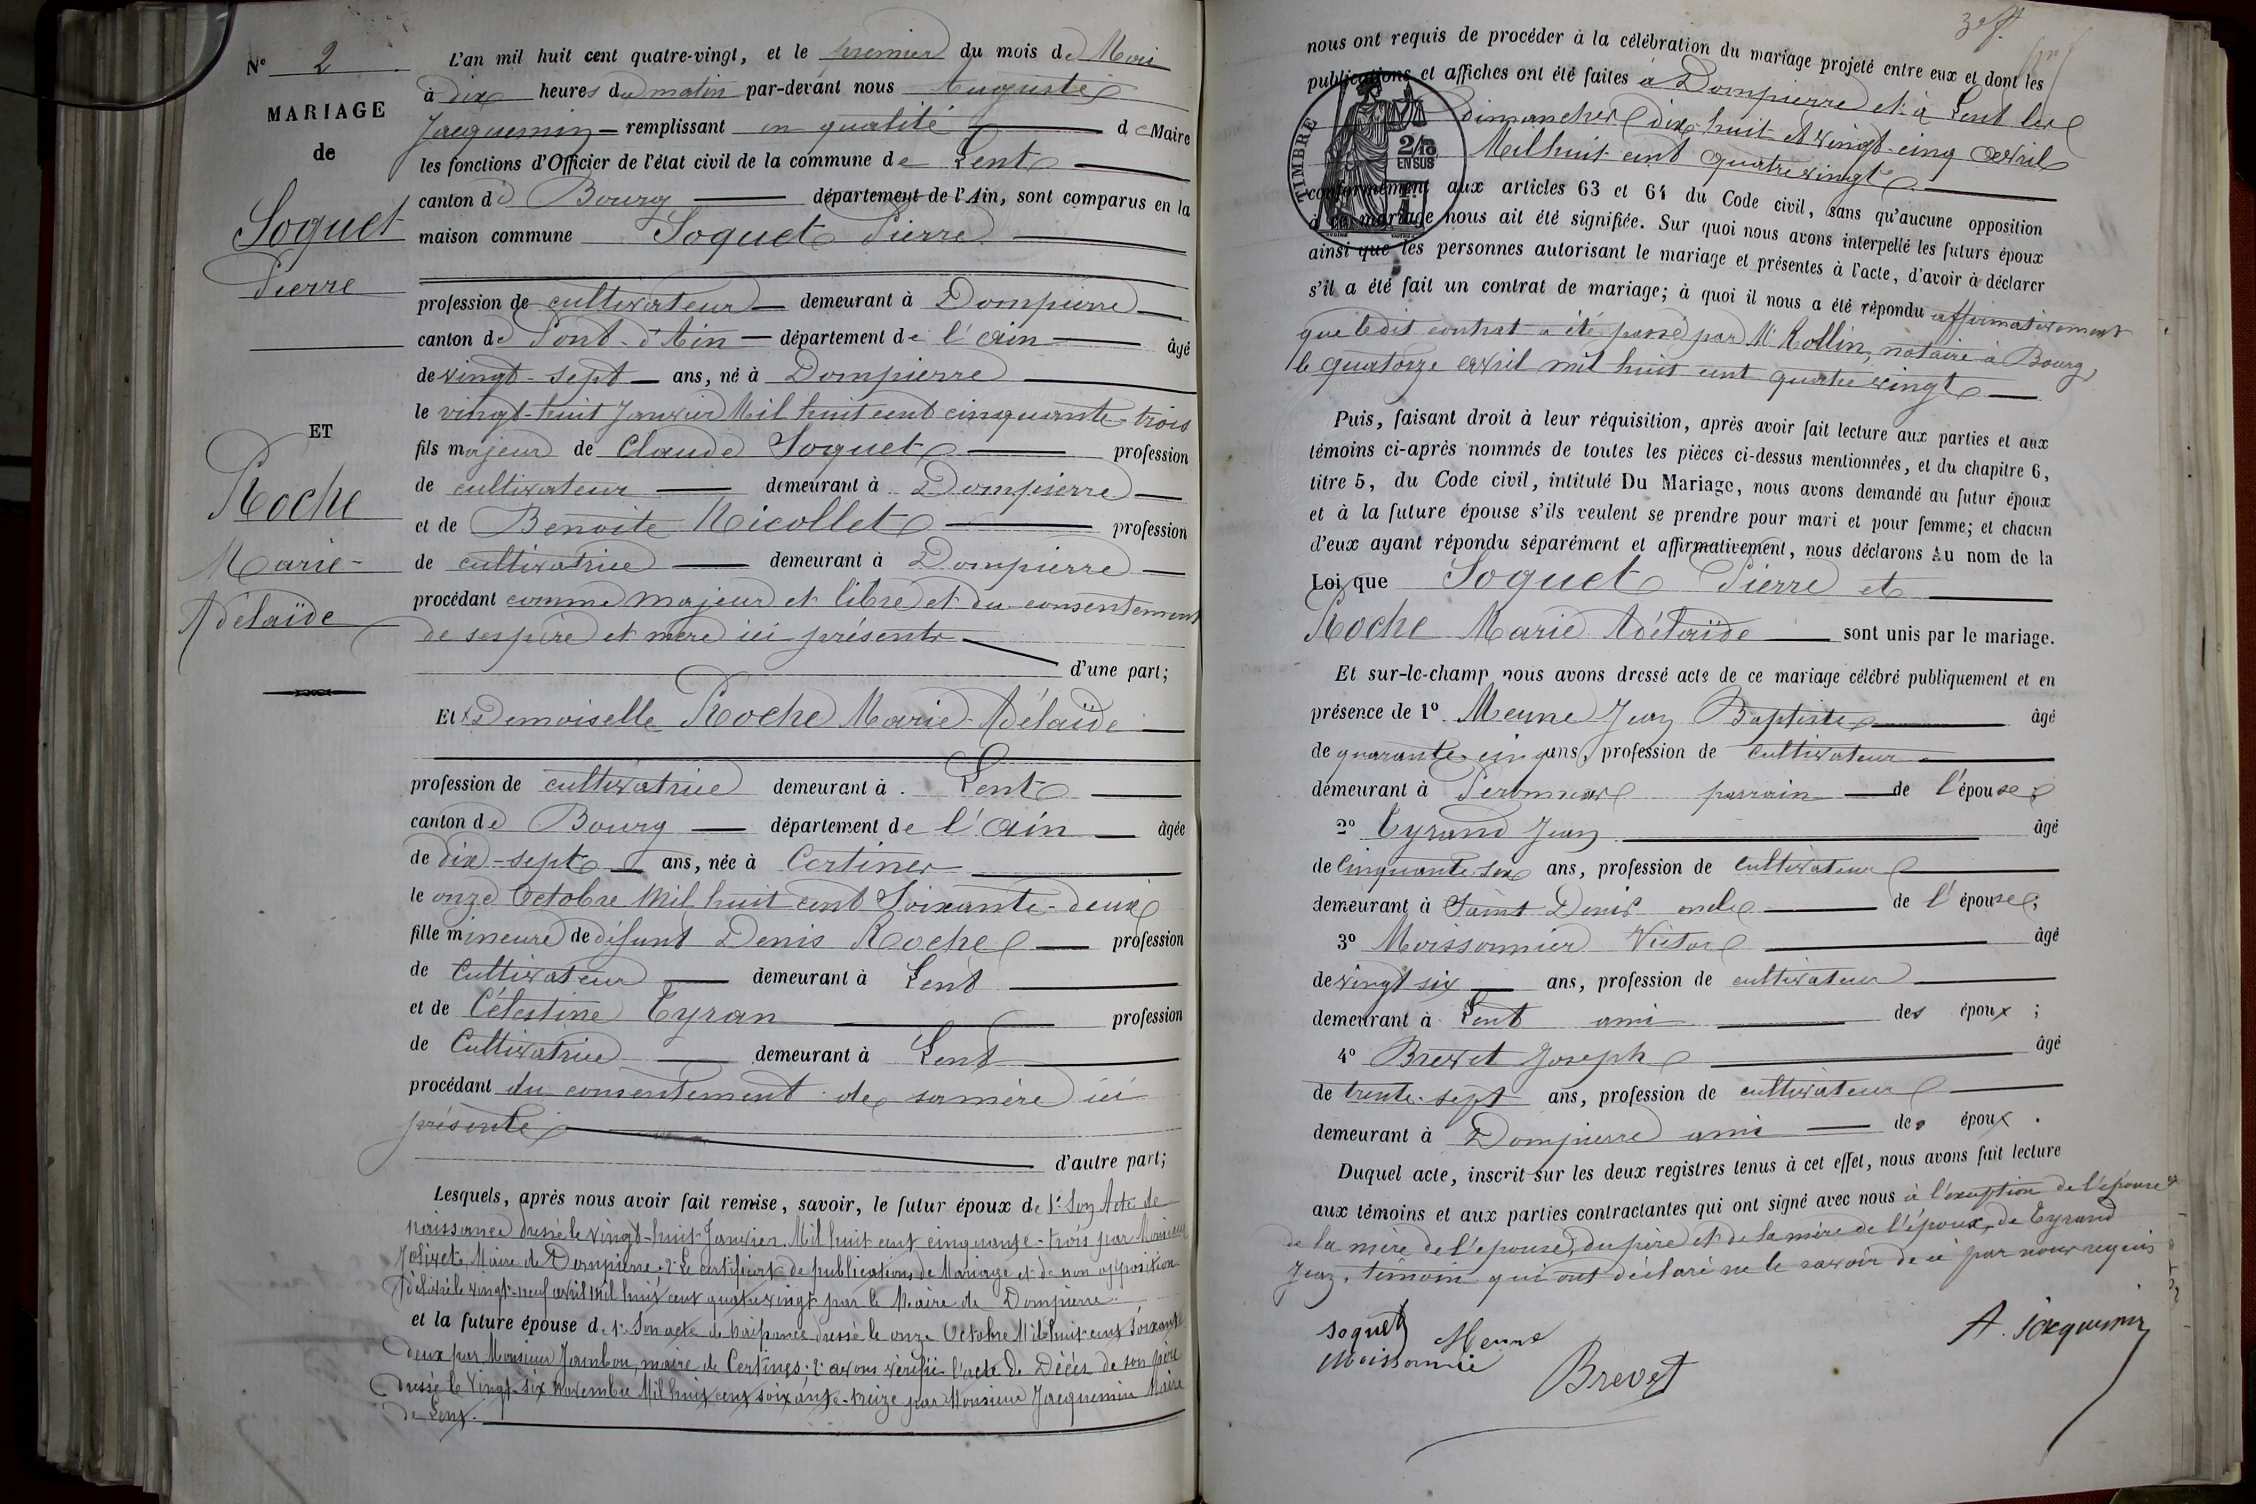 N° 2
MARIAGE
de
Soquet
Pierre
ET
Roche
Marie-
Adélaïde
L'an mil huit cent quatre-vingt, et le premier du mois de Mai
à dix heures du matin par-devant nous Auguste
Jacquemin remplissant en qualité de Maire
les fonctions d'Officier de l'état civil de la commune de Lent
canton de Bourg département de l'Ain, sont comparus en la
maison commune Soquet Pierre
profession de cultivateur demeurant à Dompierre
canton de Pont-d'Ain département de l'Ain âgé
de vingt-sept ans, né à Dompierre
le vingt-huit Janvier Mil huit cent cinquante-trois
fils majeur de Claude Soquet profession
de cultivateur demeurant à Dompierre
et de Benoite Nicollet profession
de cultivatrice demeurant à Dompierre
procédant comme majeur et libre et du consentement
de ses père et mère ici présents
d'une part;
Et Demoiselle Roche Marie-Adélaïde
profession de cultivatrice demeurant à Lent
canton de Bourg département de l'Ain âgée
de dix-sept ans, née à Certines
le onze Octobre Mil huit cent Soixante-deux
fille mineure de défunt Denis Roche profession
de Cultivateur demeurant à Lent
et de Célestine Tyran profession
de Cultivatrice demeurant à Lent
procédant du consentement de sa mère ici
présente
d'autre part;
Lesquels, après nous avoir fait remise, savoir, le futur époux de 1° Son Acte de
naissance dressé le vingt-huit Janvier Mil huit cent cinquante-trois par Monsieur
Jolivet Maire de Dompierre. 2° Le certificat de publications de Mariage et de non opposition
délivré le vingt-neuf avril Mil huit cent quatre vingt par le Maire de Dompierre.
et la future épouse de 1° Son acte de naissance dressé le onze Octobre Mil huit cent Soixante
deux par Monsieur Jambon, maire de Certines. 2° avons vérifié l'acte de Décès de son père
dressé le Vingt-six novembre Mil huit cent soixante-treize par Monsieur Jacquemin Maire
de Lent.
nous ont requis de procéder à la célébration du mariage projeté entre eux et dont les
publications et affiches ont été faites à Dompierre et à Lent les
dimanches dix-huit et vingt-cinq Avril
Mil huit cent quatre vingt
TIMBRE
2/10
EN SUS
conformément aux articles 63 et 64 du Code civil, sans qu'aucune opposition
à ce mariage nous ait été signifiée. Sur quoi nous avons interpellé les futurs époux
ainsi que les personnes autorisant le mariage et présentes à l'acte, d'avoir à déclarer
s'il a été fait un contrat de mariage; à quoi il nous a été répondu affirmativement
que ledit contrat a été passé par Me Rollin, notaire à Bourg,
le quatorze Avril mil huit cent quatre vingt
Puis, faisant droit à leur réquisition, après avoir fait lecture aux parties et aux
témoins ci-après nommés de toutes les pièces ci-dessus mentionnées, et du chapitre 6,
titre 5, du Code civil, intitulé Du Mariage, nous avons demandé au futur époux
et à la future épouse s'ils veulent se prendre pour mari et pour femme; et chacun
d'eux ayant répondu séparément et affirmativement, nous déclarons Au nom de la
Loi que Soquet Pierre et
Roche Marie Adélaïde sont unis par le mariage.
Et sur-le-champ nous avons dressé acte de ce mariage célébré publiquement et en
présence de 1° Meune Jean Baptiste âgé
de quarante cinq ans, profession de cultivateur
demeurant à Peronnas parrain de l'épouse;
2° Tyrand Jean âgé
de Cinquante six ans, profession de Cultivateur
demeurant à Saint Denis oncle de l'épouse;
3° Moissonnier Victor âgé
de vingt six ans, profession de cultivateur
demeurant à Lent ami des époux;
4° Brevet Joseph âgé
de trente-sept ans, profession de cultivateur
demeurant à Dompierre ami des époux.
Duquel acte, inscrit sur les deux registres tenus à cet effet, nous avons fait lecture
aux témoins et aux parties contractantes qui ont signé avec nous à l'exception de l'épouse
de la mère de l'épouse, du père et de la mère de l'époux, de Tyrand
Jean, témoin qui ont déclaré ne le savoir de ce par nous requis
soquet Meune A. Jacquemin
Moissonnié Brevet